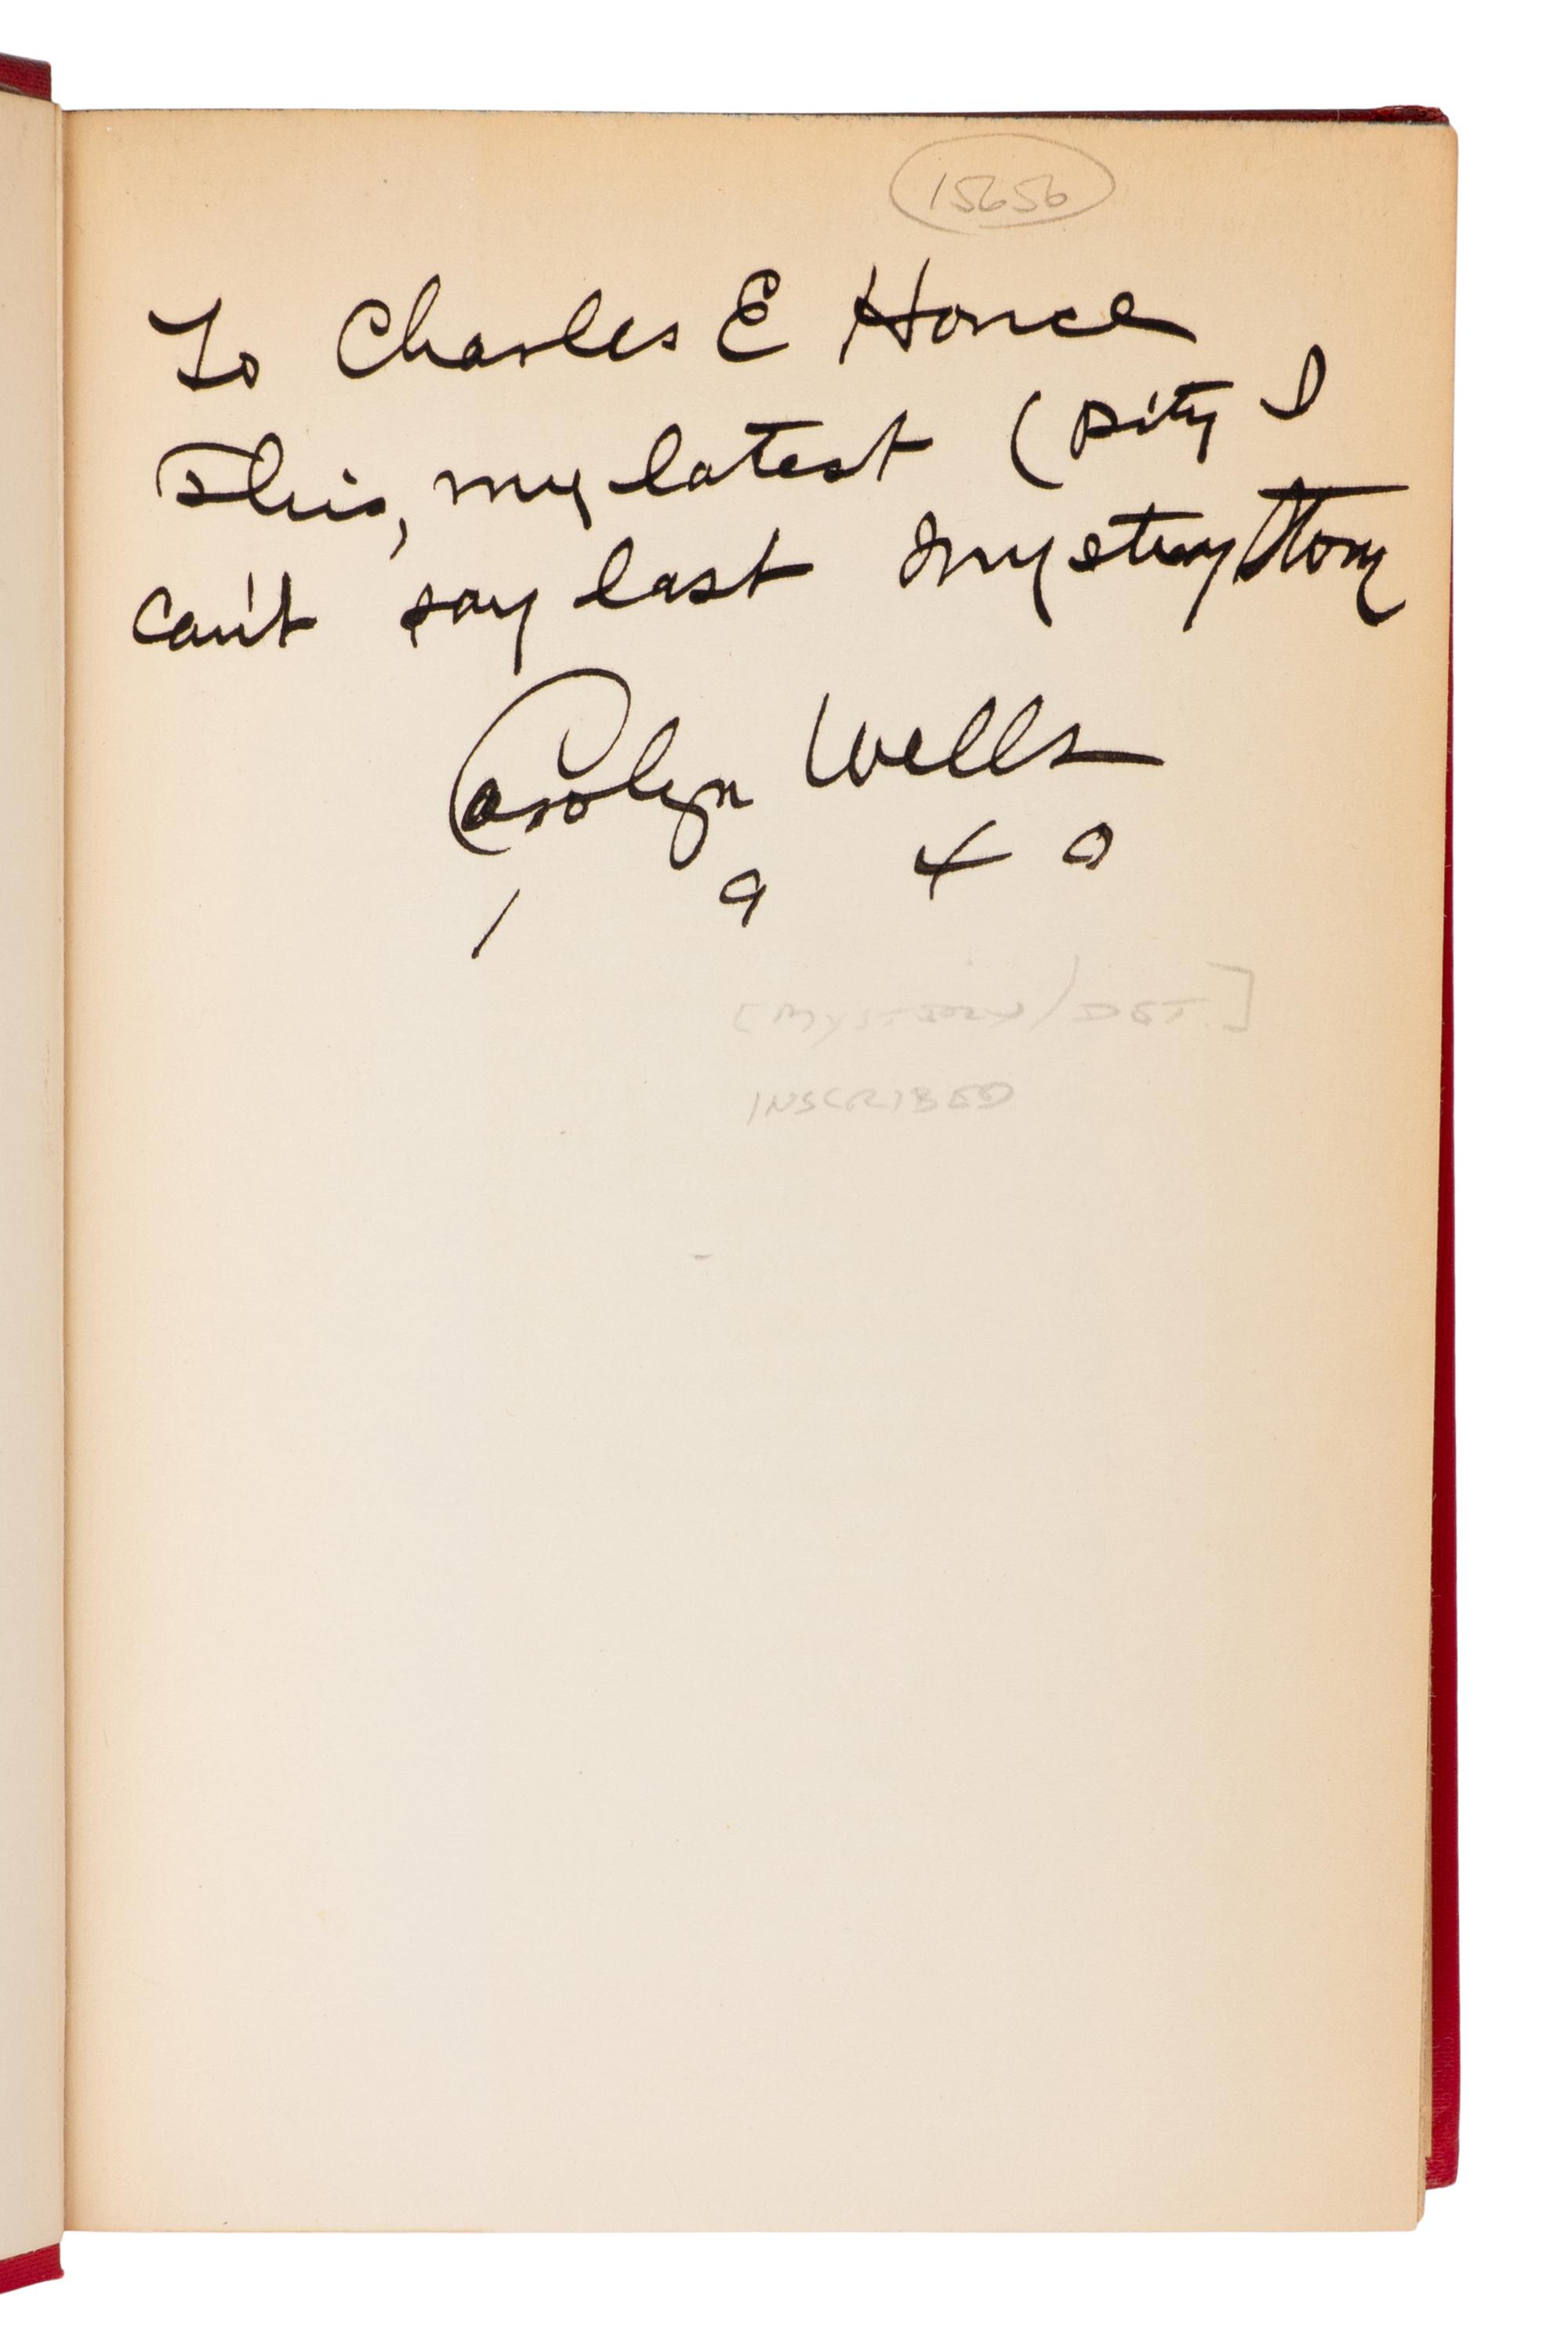 15656
To Charles E Honce
This, my latest (pity I
can't say last mystery story
Carolyn Wells
1940
[MYSTERY/DET.]
INSCRIBED